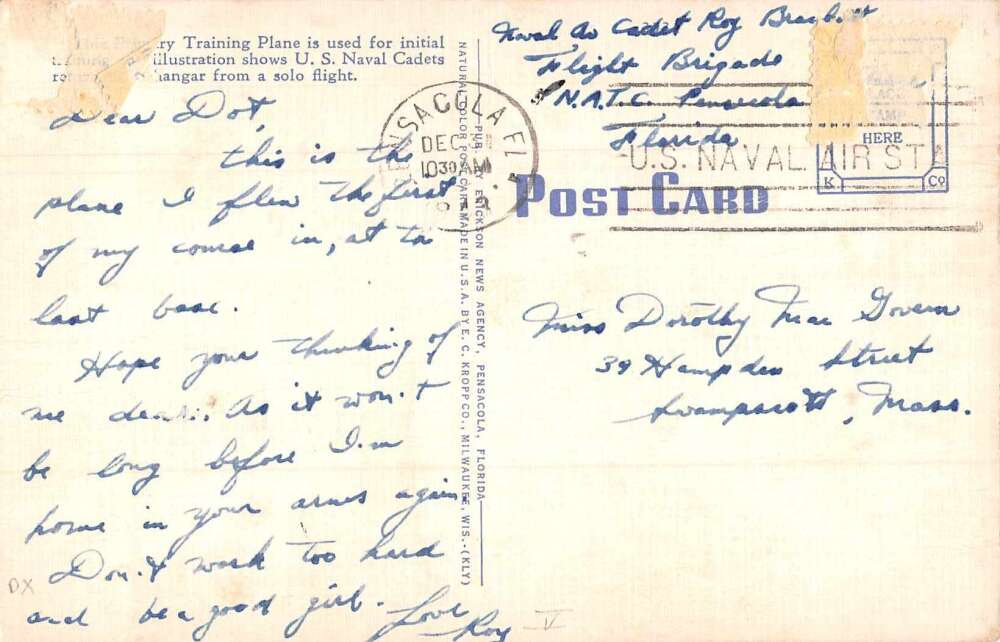 Training Plane is used for initial
illustration shows U. S. Naval Cadets
hangar from a solo flight.
Dear Dot,
this is the
plane I flew the first
of my course in, at
last base.
Hope your thinking of
me As it won't
be long before I'm
home in your arms again
Don't work too hard
and be a good girl. Love
Roy
DX
NATURAL COLOR POST CARD MADE IN U.S.A. BY E. C. KROPP CO., MILWAUKEE, WIS.-(KLY)
PUB. BY ERICKSON NEWS AGENCY, PENSACOLA, FLORIDA
PENSACOLA FL
DEC
1030 AM
Naval Av Cadet Roy
Flight Brigade
N.A.T.C. Pensacola
Florida
PLACE
STAMP
HERE
K Co
U.S. NAVAL AIR STA
POST CARD
Miss Dorothy Mac Govern
39 Hampden Street
Swampscott, Mass.
V